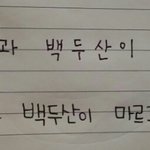 과 백두산이
백두산이 마르고